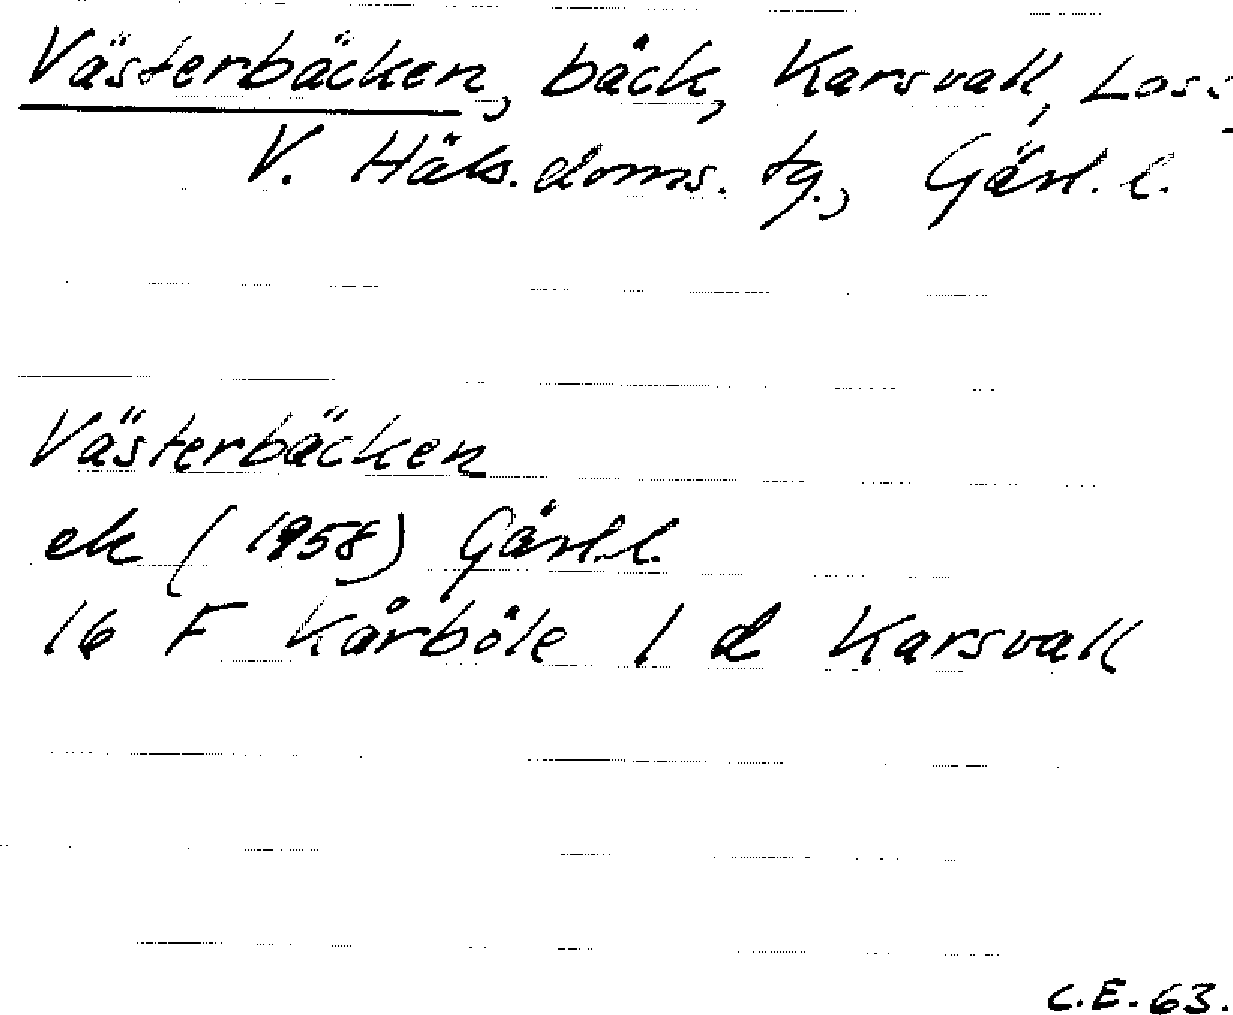 Västerbäcken, bäck, Karsvall, Los s
V. Häls. doms. tg., Gävl. l.
Västerbäcken
ek (1958) Gävl. l.
16 F Kårböle 1 d Karsvall
C.E. 63.